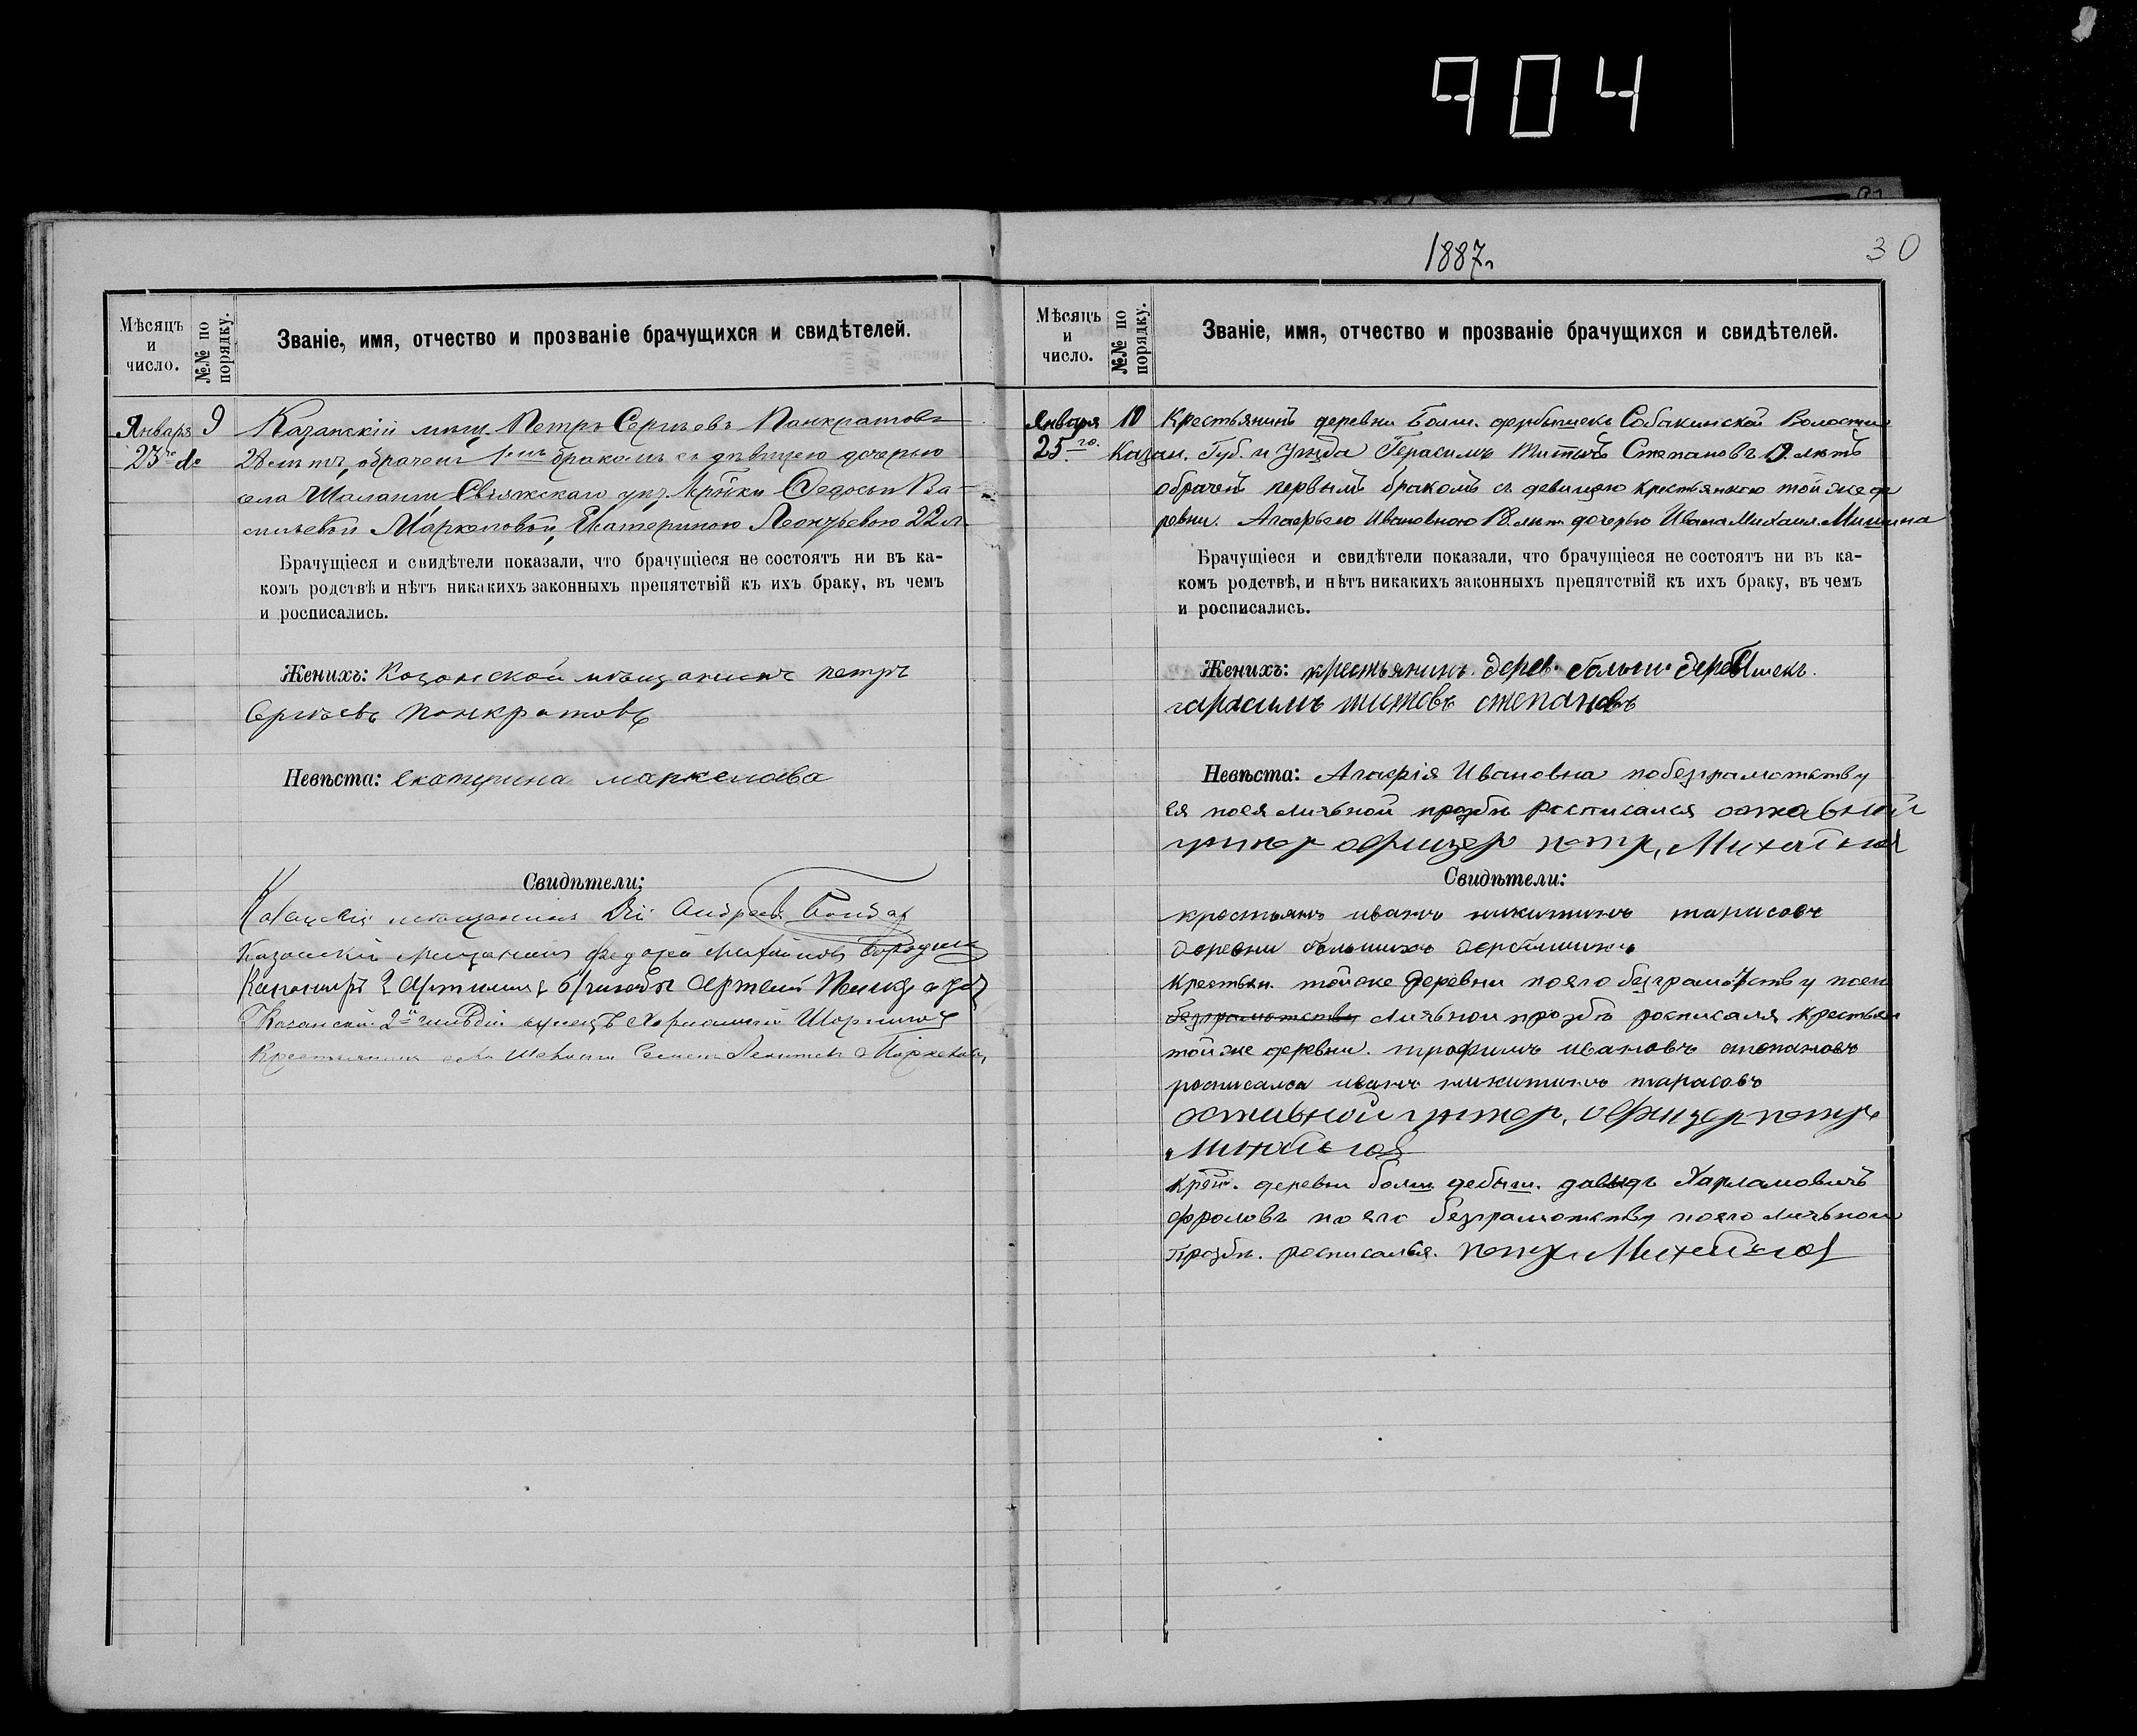 904
1887г.
30
Мѣсяцъ и число.
№№ по порядку.
Званіе, имя, отчество и прозваніе брачущихся и свидѣтелей.
Января 9 Казанскій мѣщ. Петръ Сергѣевъ Панкратовъ
23го дс 28 лѣтъ, обрачен 1емъ бракомъ съ дѣвицею дочерью
села Шаланги Свіяжскаго уѣз. Ѳедосьи Ва-
сильевой Маркеловой, Екатериною Леонтьевою 22 л.
Брачущіеся и свидѣтели показали, что брачущіеся не состоятъ ни въ ка-
комъ родствѣ и нѣтъ никакихъ законныхъ препятствій къ ихъ браку, въ чемъ
и росписались.
Женихъ: Козонской мѣщанинъ петръ
Сергѣевъ понкратовъ
Невѣста: екатерина маркелова
Свидѣтели:
мѣщанинъ Андреев
Казанскій мещанинъ Бородин
2 Артилер бригады Артемій
Казанскій 2й гильдіи купецъ
Крестьянинъ села Шаланги Семенъ Леонтьев Маркелов
Мѣсяцъ и число.
№№ по порядку.
Званіе, имя, отчество и прозваніе брачущихся и свидѣтелей.
Января 10 Крестьянинъ деревни Болш. дербышекъ Собакинской Волости
25го. Казан. Губ. и Уѣзда Герасимъ Титычъ Степановъ 19. лѣтъ
обраченъ первымъ бракомъ съ девицею крестьянкою той же де
ревни. Агафьею Ивановною 18. лѣт дочерью Ивана Михаил. Мишина
Брачущіеся и свидѣтели показали, что брачущіеся не состоятъ ни въ ка-
комъ родствѣ, и нѣтъ никакихъ законныхъ препятствій къ ихъ браку, въ чемъ
и росписались.
Женихъ: крестьянинъ. дерев. больш. дербышекъ.
гарасимъ титовъ степановъ
Невѣста: Агафія Ивановна побезграмотству
ея поея личьной прозбѣ росписался отставной
унтер офицер петр. Михайлов
Свидѣтели:
крестьянъ иванъ никитинъ тарасовъ
деревни большихъ дербышикъ
Крестьян. тойже деревни поего безграмотству поего
безграмотству личьной прозбѣ росписалъ крестьян
той же деревни. трофимъ ивановъ степановъ
росписался иванъ никитинъ тарасовъ
отставной унтер. офицер петр
Михайлов
Крест. деревни болш дебыш. давыдъ Харламовичъ
фроловъ по его безграмотству поего личьной
прозбѣ. росписалься. петр Михайлов